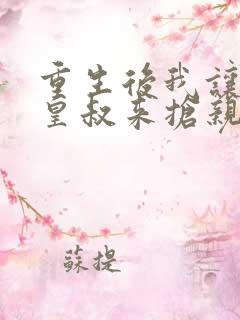 重生後我讓
皇叔來搶親
蘇提